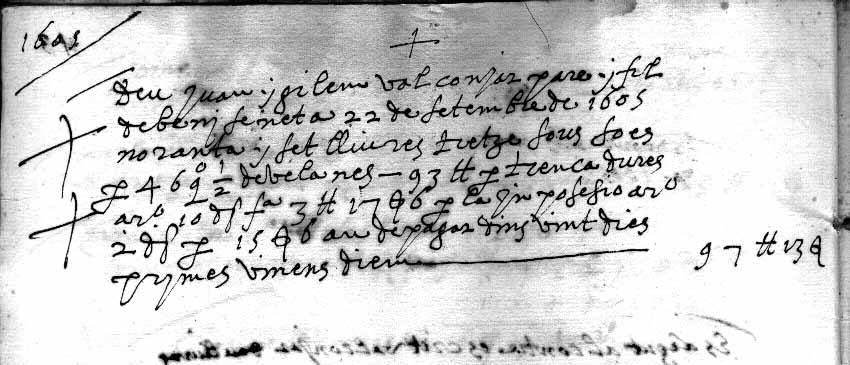 1605
Deu juan y gilem valconjar pare y fil
de benj fe neta a 22 de setembre de 1605
noranta y set lliures tretze sous so es
p 4 69 1/2 de velanes — 93 ﬄ p trencadures
aro 10 ds fa 3 ﬄ 17 § 6 p la jnposesio aro
2 ds p 15 § 6 an de pagar dins vint dies
prjmes vinens diem 97 ﬄ 13 §